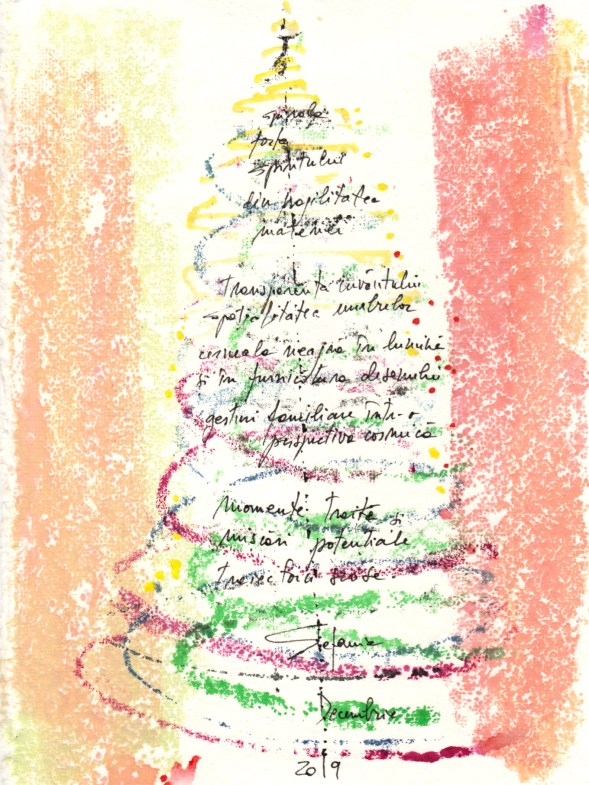 spirala
forța
spiritului
din fragilitatea
materiei
transparența învăluitului
spațialitatea umbrelor
cerneala neagră în lumină
și în furnicătura desenului
gesturi familiare într-o
perspectivă cosmică
momente trăite și
mișcări potențiale
traiectorii
Ștefania
Decembrie
2019